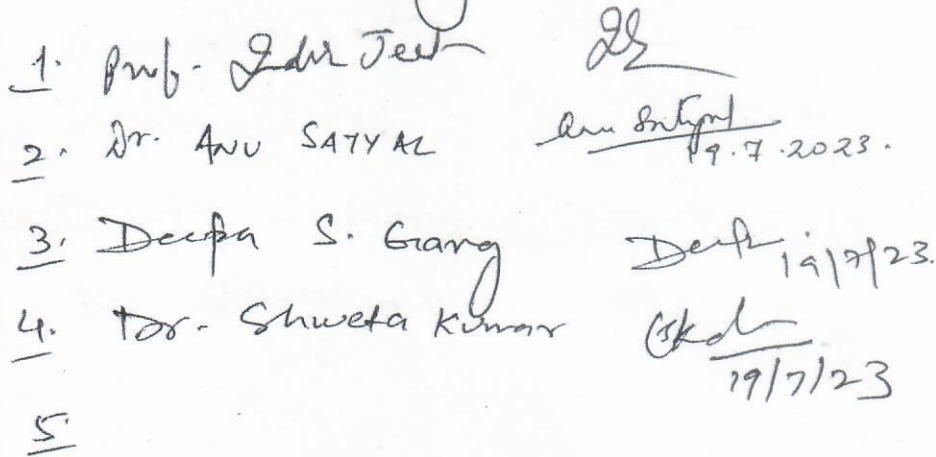 1. Prof. Inder Jeet
2. Dr. ANU SATYAL Anu Satyal 19.7.2023.
3. Deepa S. Garg Deepa 19/7/23.
4. Dr. Shweta Kumar 19/7/23
5